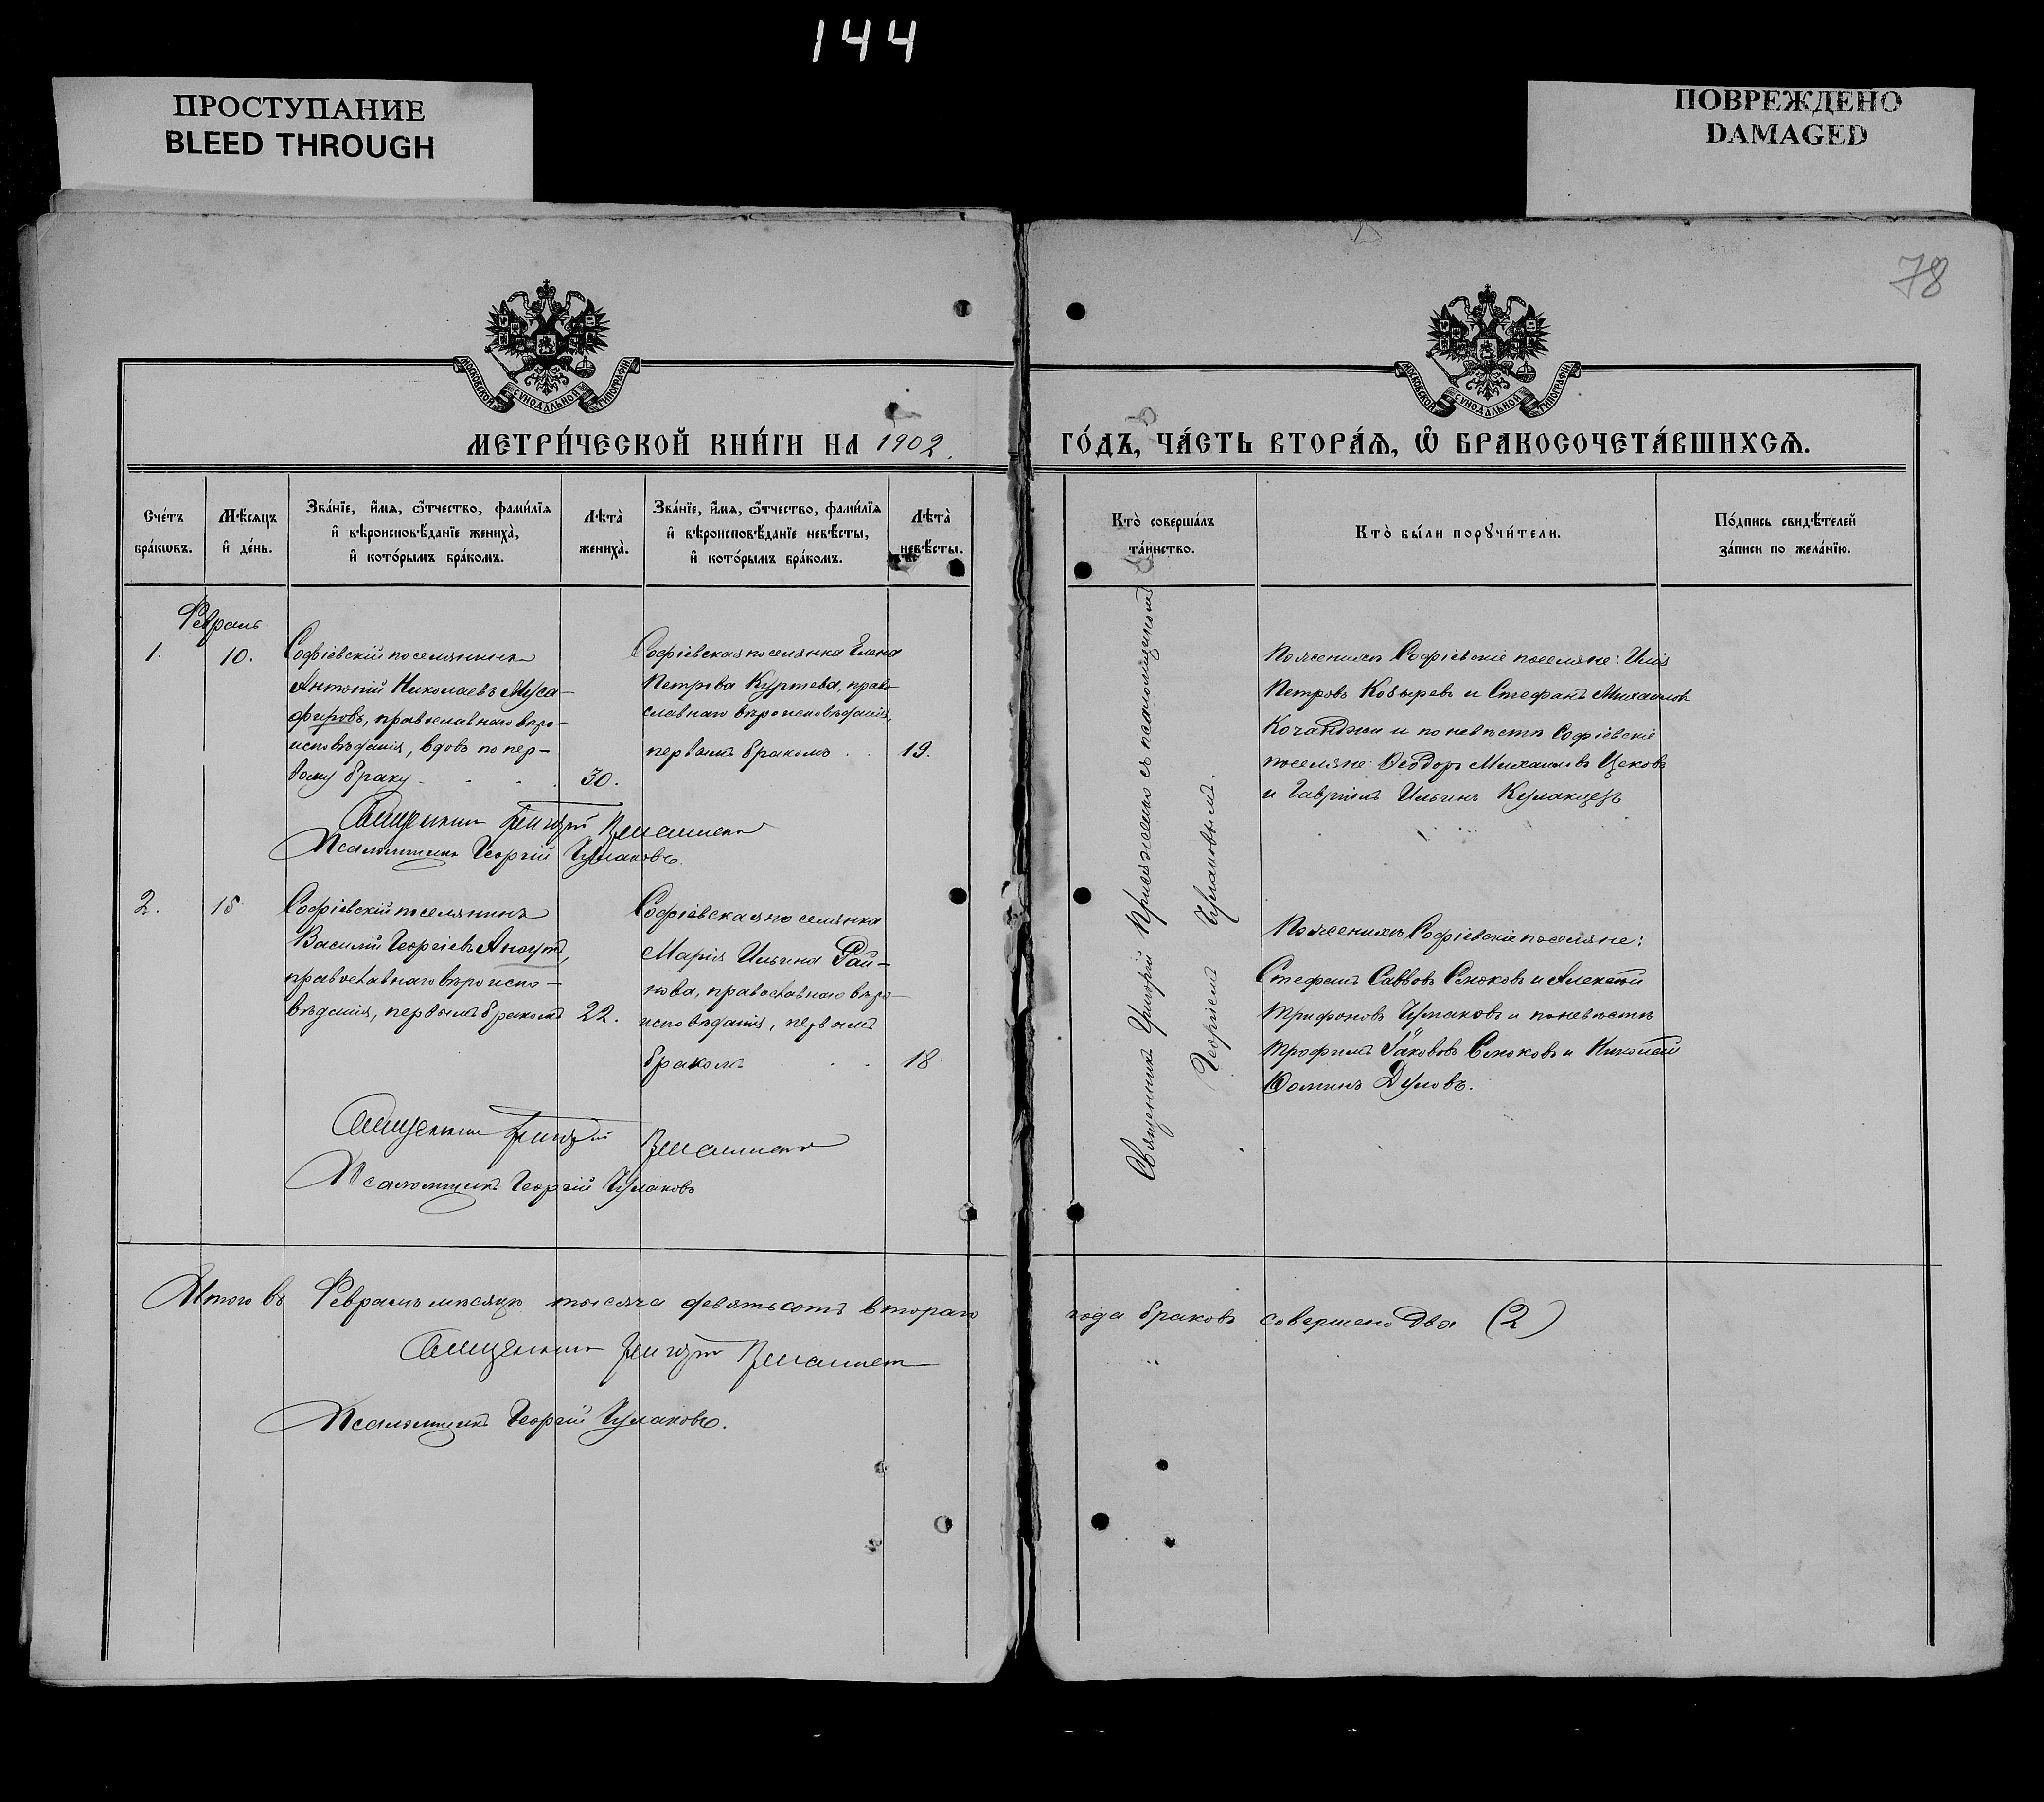 144
ПРОСТУПАНИЕ
BLEED THROUGH
ПОВРЕЖДЕНО
DAMAGED
78
МОСКОВСКОЙ СѴНОДАЛЬНОЙ ТИПОГРАФІИ
МОСКОВСКОЙ СѴНОДАЛЬНОЙ ТИПОГРАФІИ
МЕТРИ́ЧЕСКОЙ КНИ́ГИ НА 1902.
ГО́ДЪ, ЧА́СТЬ ВТОРА́Ѧ, Ѽ БРАКОСОЧЕТА́ВШИХСѦ.
Сче́тъ
бра́кѡвъ.
Мѣ́сѧцъ
и҆ де́нь.
Зва́нїе, и҆́мѧ, ѻ҆́тчество, фами́лїѧ
и҆ вѣроисповѣ́данїе жениха̀,
и҆ кото́рымъ бра́комъ.
Лѣта̀
жениха̀.
Зва́нїе, и҆́мѧ, ѻ҆́тчество, фами́лїѧ
и҆ вѣроисповѣ́данїе невѣ́сты,
и҆ кото́рымъ бра́комъ.
Лѣта̀
невѣ́сты.
Кто̀ соверша́лъ
та́инство.
Кто̀ бы́ли порꙋчи́тели.
По́дпись свидѣ́телей
за́писи по жела́нїю.
Февраль
1.
10.
Софіевскій поселянинъ
Антоній Николаевъ Муса-
фировъ, православнаго вѣро-
исповѣданія, вдовъ по пер-
вому браку
30.
Софіевская поселянка Елена
Петрова Куртева, право-
славнаго вѣроисповѣданія,
первымъ бракомъ
19.
Священникъ Григорій
Псаломщикъ Георгій Чумаковъ.
Священникъ Григорій съ псаломщикомъ
Георгіемъ Чумаковымъ.
По женихѣ Софіевскіе поселяне: Илія
Петровъ Козыревъ и Стефанъ Михаиловъ
Кочанджи и по невѣстѣ Софіевскіе
поселяне: Ѳеодоръ Михаиловъ Цековъ
и Гавріилъ Ильинъ
2.
15
Софіевскій поселянинъ
Василій Георгіевъ Арнаутъ,
православнаго вѣроиспо-
вѣданія, первымъ бракомъ
22.
Софіевская поселянка
Марія Ильина Рай-
нова, православнаго вѣро-
исповѣданія, первымъ
бракомъ
18.
По женихѣ Софіевскіе поселяне:
Стефанъ Саввовъ Слюковъ и Алексѣй
Трифоновъ Чумаковъ и по невѣстѣ
Трофимъ Іаковovъ Слюковъ и Николай
Ѳоминъ Дуловъ.
Священникъ Григорій
Псаломщикъ Георгій Чумаковъ
Итого въ Февралѣ мѣсяцѣ тысяча девятьсотъ втораго
года браковъ совершено два (2)
Священникъ Григорій
Псаломщикъ Георгій Чумаковъ.